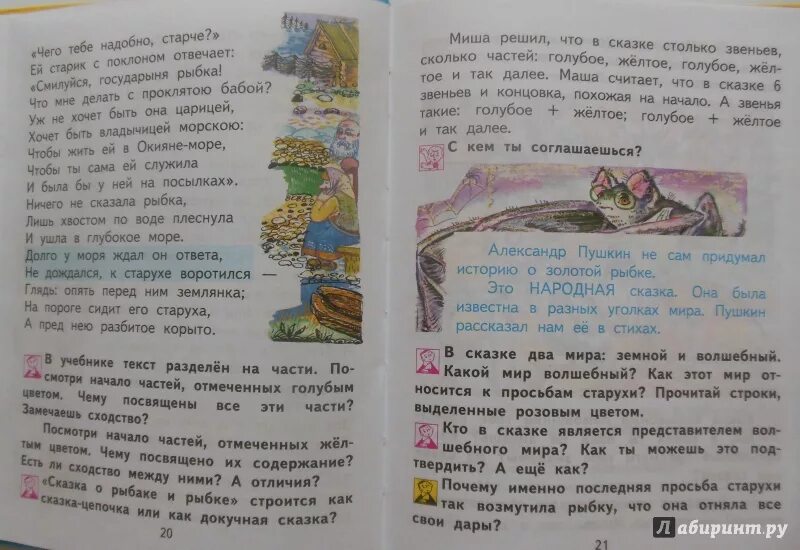 «Чего тебе надобно, старче?»
Ей старик с поклоном отвечает:
«Смилуйся, государыня рыбка!
Что мне делать с проклятою бабой?
Уж не хочет быть она царицей,
Хочет быть владычицей морскою:
Чтобы жить ей в Окияне-море,
Чтобы ты сама ей служила
И была бы у ней на посылках».
Ничего не сказала рыбка,
Лишь хвостом по воде плеснула
И ушла в глубокое море.
Долго у моря ждал он ответа,
Не дождался, к старухе воротился —
Глядь: опять перед ним землянка;
На пороге сидит его старуха,
А пред нею разбитое корыто.
В учебнике текст разделён на части. По-
смотри начало частей, отмеченных голубым
цветом. Чему посвящены все эти части?
Замечаешь сходство?
Посмотри начало частей, отмеченных жёл-
тым цветом. Чему посвящено их содержание?
Есть ли сходство между ними? А отличия?
«Сказка о рыбаке и рыбке» строится как
сказка-цепочка или как докучная сказка?
20
Миша решил, что в сказке столько звеньев,
сколько частей: голубое, жёлтое, голубое, жёл-
тое и так далее. Маша считает, что в сказке 6
звеньев и концовка, похожая на начало. А звенья
такие: голубое + жёлтое; голубое + жёлтое
и так далее.
С кем ты соглашаешься?
Александр Пушкин не сам придумал
историю о золотой рыбке.
Это НАРОДНАЯ сказка. Она была
известна в разных уголках мира. Пушкин
рассказал нам её в стихах.
В сказке два мира: земной и волшебный.
Какой мир волшебный? Как этот мир от-
носится к просьбам старухи? Прочитай строки,
выделенные розовым цветом.
Кто в сказке является представителем вол-
шебного мира? Как ты можешь это под-
твердить? А ещё как?
Почему именно последняя просьба старухи
так возмутила рыбку, что она отняла все
свои дары?
21
Лабиринт.ру